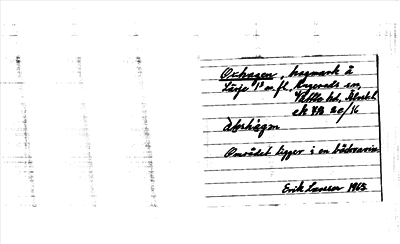 Oxhagen, hagmark å
Lärje 1:3 m. fl., Angereds sn,
Vättle hd, Älvsb. l.
ek 7B 2c/16
Området ligger i en bäckravin.
Erik Larsson 1965